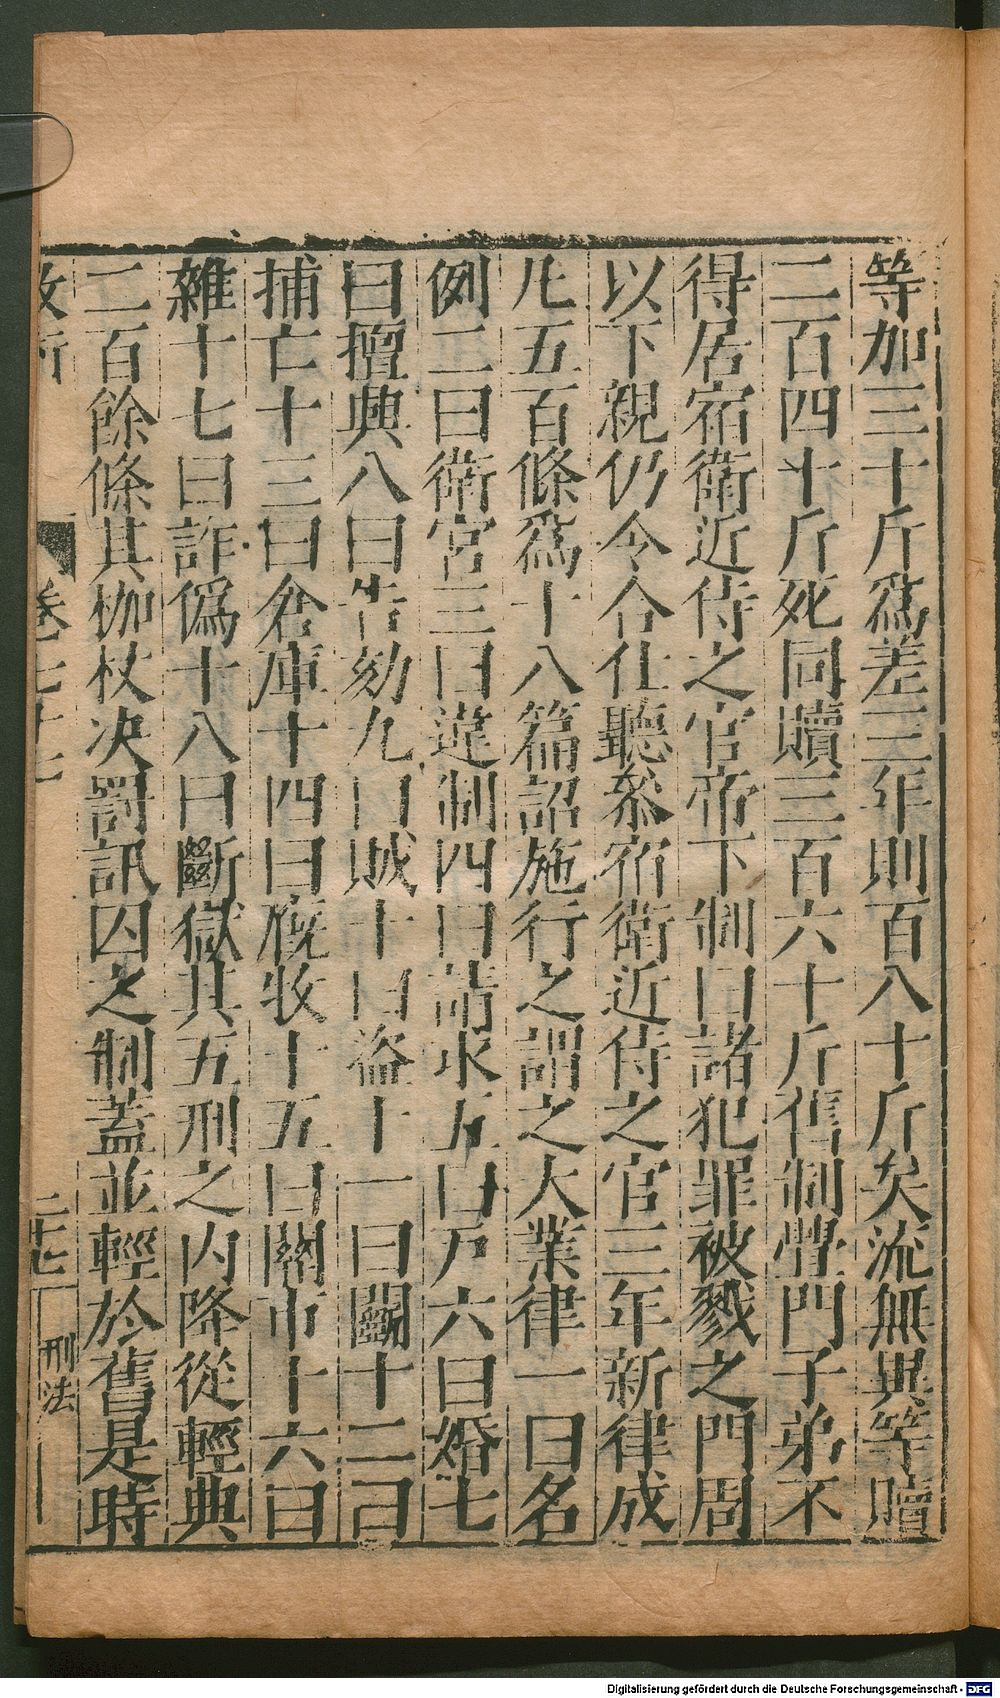 等加三十斤爲差三年則百八十斤矣流無異等贖
二百四十斤死同贖三百六十斤舊制舋門子弟不
得居宿衛近侍之官帝下制曰諸犯罪被戮之門周
以下親仍令合仕聽叅宿衛近侍之官三年新律成
凡五百條爲十八篇詔施行之謂之大業律一曰名
例二曰衛宮三曰違制四曰請求五曰戶六曰婚七
曰擅興八曰告劾九曰賊十曰盜十一曰鬬十二曰
捕亡十三曰倉庫十四曰廐牧十五曰關市十六曰
雜十七曰詐僞十八曰斷獄其五刑之內降從輕典
二百餘條其枷杖决罰訊囚之制蓋並輕於舊是時
二十七 刑法
Digitalisierung gefördert durch die Deutsche Forschungsgemeinschaft - DFG